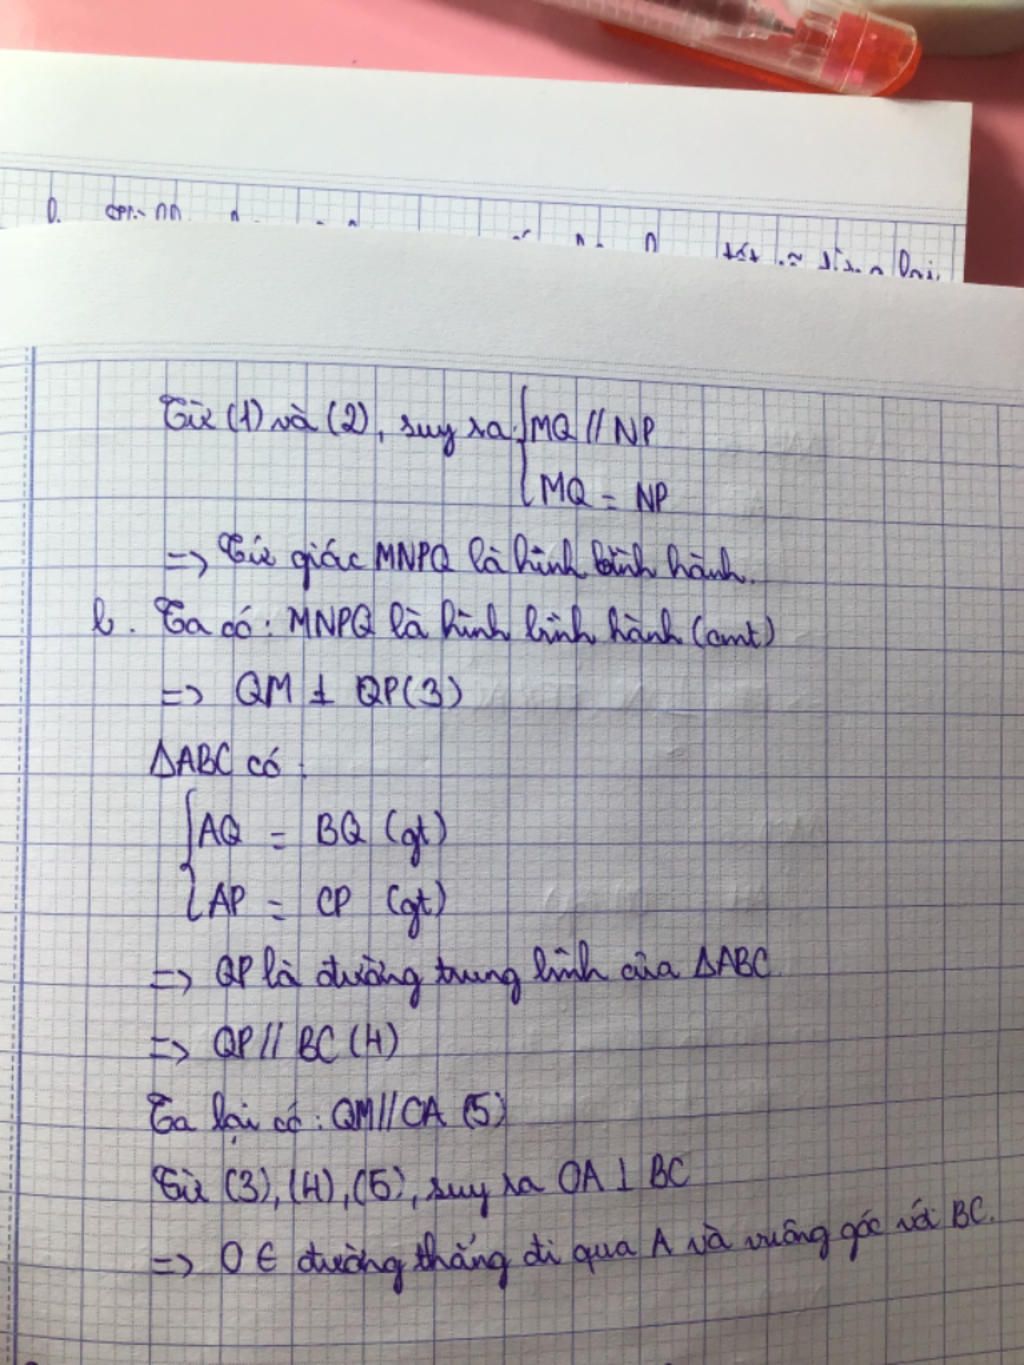 Từ (1) và (2), suy ra: { MQ // NP
MQ = NP
=> Tứ giác MNPQ là hình bình hành.
b. Ta có: MNPQ là hình bình hành (cmt)
=> QM ⊥ QP (3)
ΔABC có:
{ AQ = BQ (gt)
AP = CP (gt)
=> QP là đường trung bình của ΔABC
=> QP // BC (4)
Ta lại có: QM // OA (5)
Từ (3), (4), (5), suy ra OA ⊥ BC
=> O ∈ đường thẳng đi qua A và vuông góc với BC.